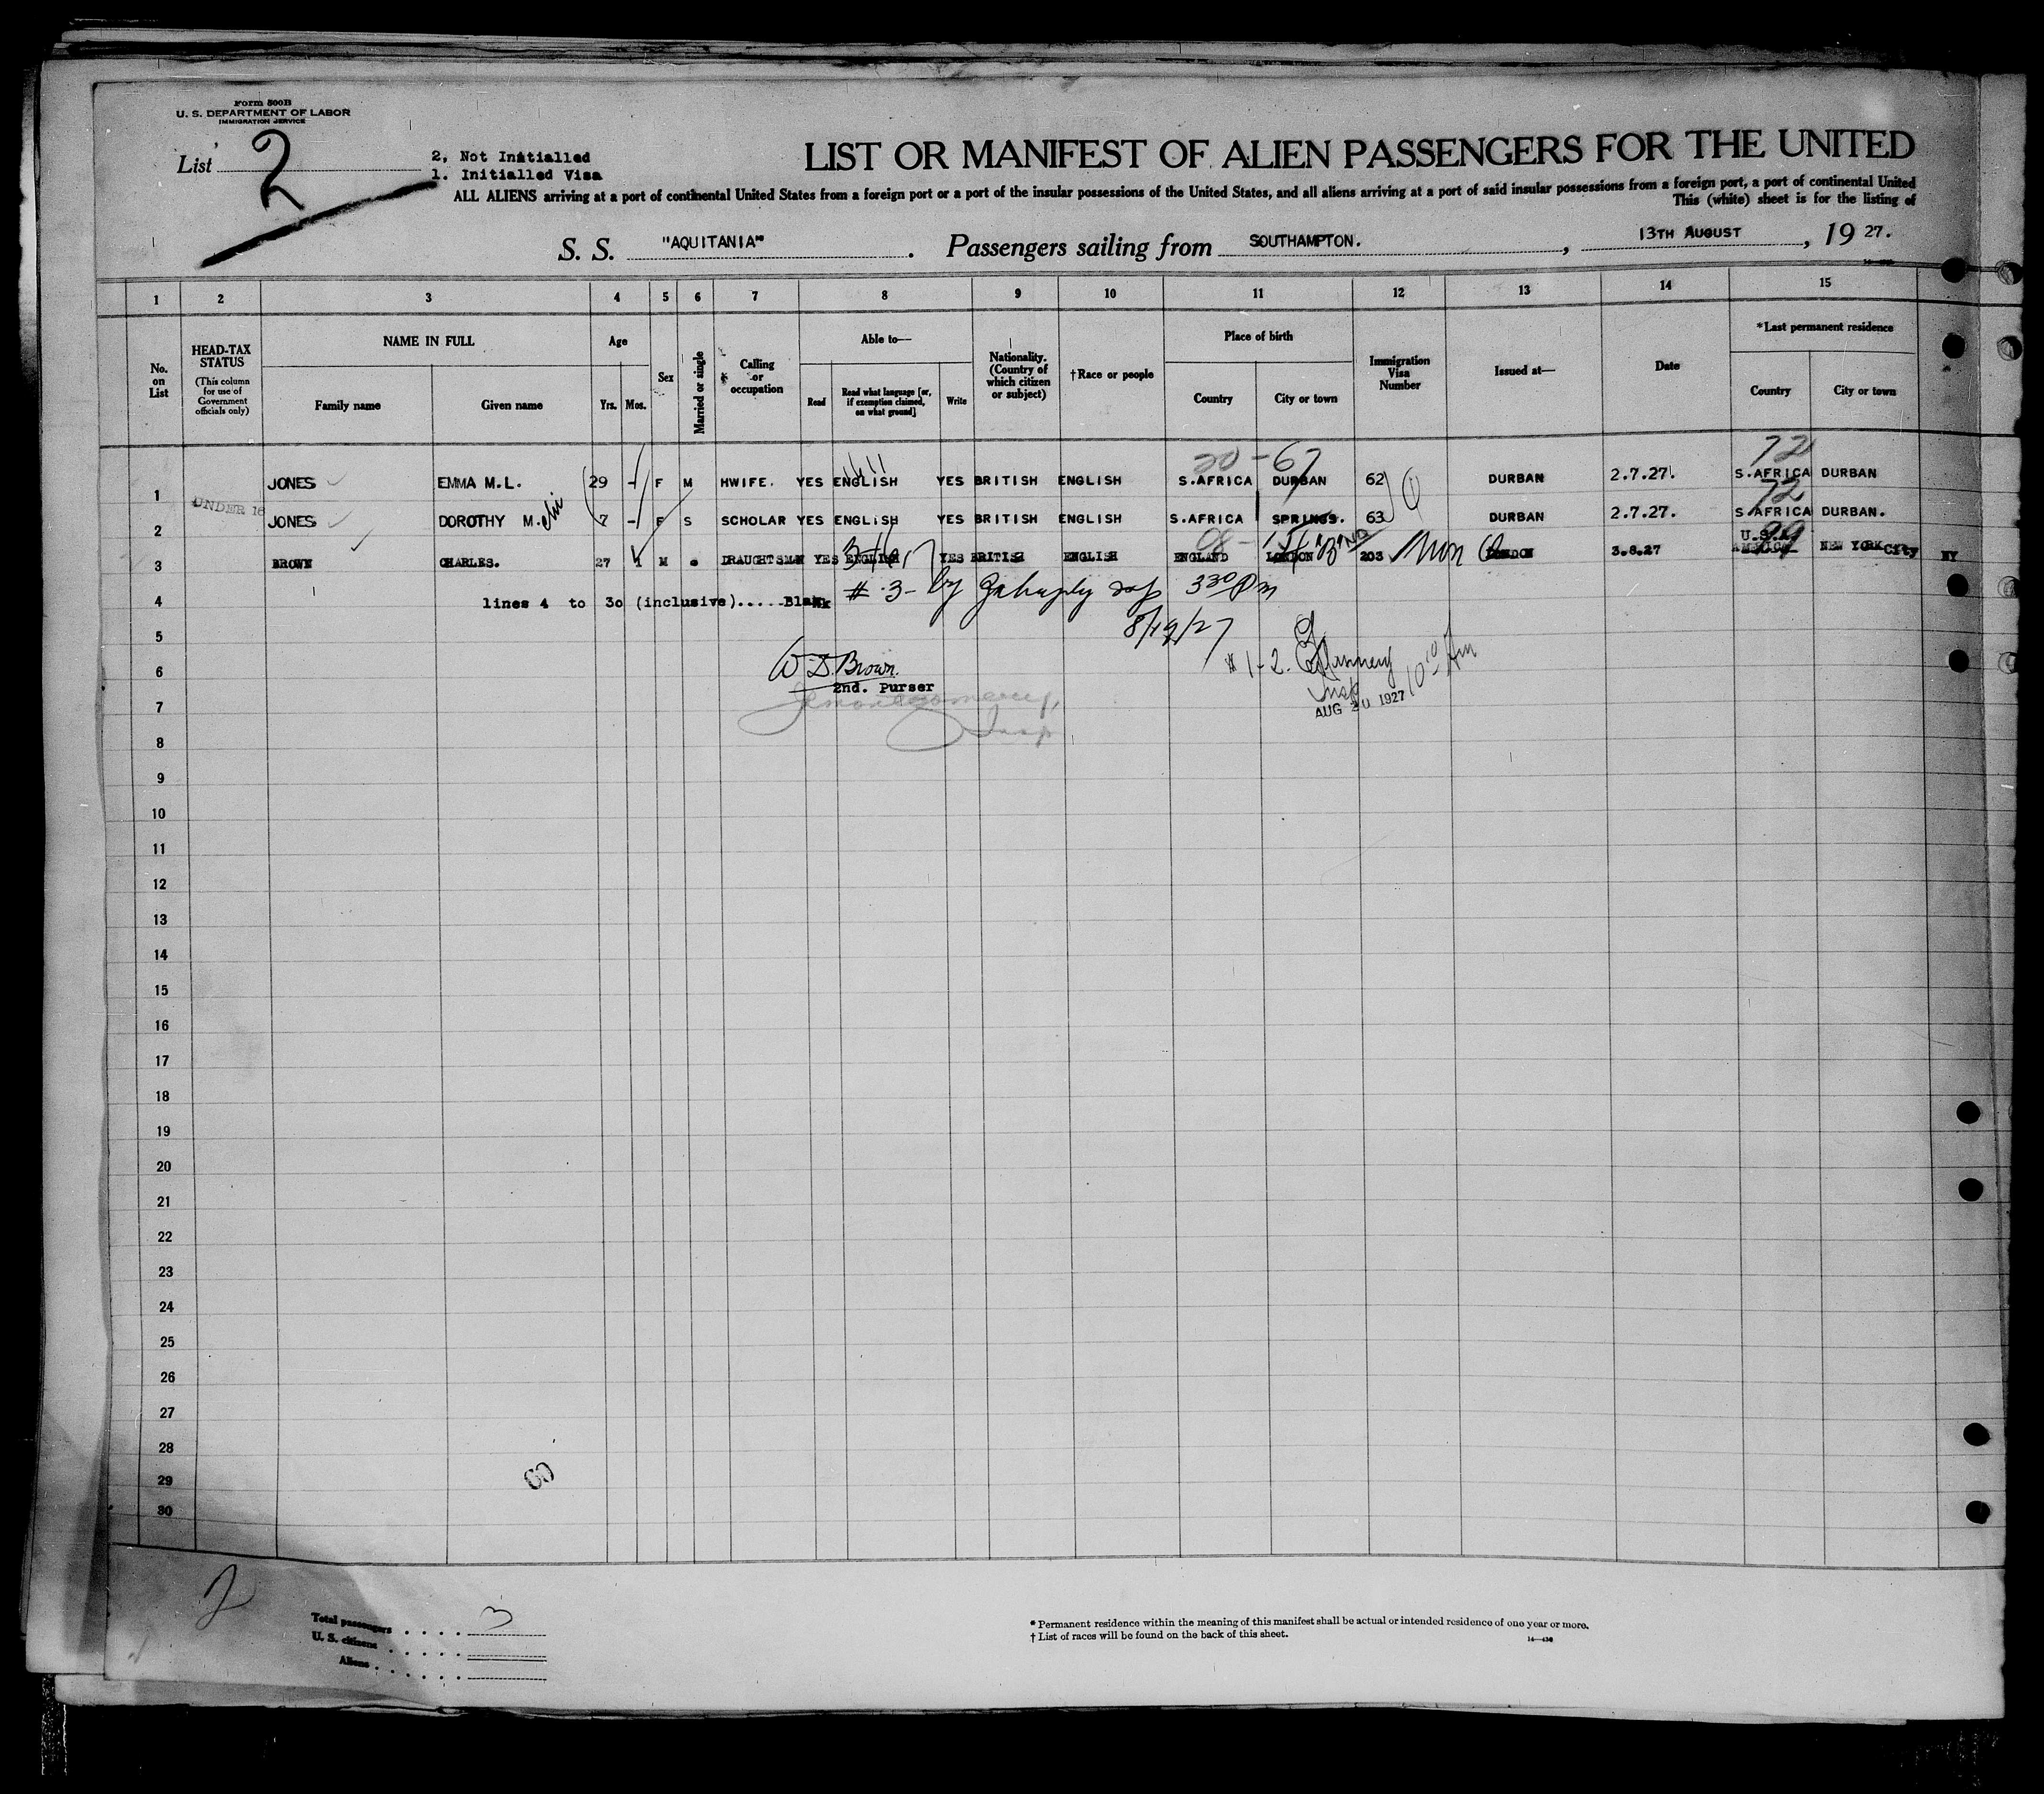 Form 500B
U. S. DEPARTMENT OF LABOR
IMMIGRATION SERVICE
List 2
2, Not Initialled
1. Initialled Visa
LIST OR MANIFEST OF ALIEN PASSENGERS FOR THE UNITED
ALL ALIENS arriving at a port of continental United States from a foreign port or a port of the insular possessions of the United States, and all aliens arriving at a port of said insular possessions from a foreign port, a port of continental United
This (white) sheet is for the listing of
S. S. "AQUITANIA" . Passengers sailing from SOUTHAMPTON. , 13TH AUGUST , 19 27.
1 2 3 4 5 6 7 8 9 10 11 12 13 14 15
No. on List
HEAD-TAX STATUS
(This column for use of Government officials only)
NAME IN FULL
Family name Given name
Age
Yrs. Mos.
Sex
Married or single
Calling or occupation
Able to—
Read
Read what language [or, if exemption claimed, on what ground]
Write
Nationality. (Country of which citizen or subject)
†Race or people
Place of birth
Country City or town
Immigration Visa Number
Issued at—
Date
*Last permanent residence
Country City or town
20-67 72
1 JONES EMMA M.L. 29 - F M HWIFE. YES ENGLISH YES BRITISH ENGLISH S.AFRICA DURBAN 62 DURBAN 2.7.27. S.AFRICA DURBAN
72
2 UNDER 16 JONES DOROTHY M. 7 - F S SCHOLAR YES ENGLISH YES BRITISH ENGLISH S.AFRICA SPRINGS. 63 DURBAN 2.7.27. S.AFRICA DURBAN.
3 BROWN CHARLES. 27 1 M DRAUGHTSMAN YES ENGLISH YES BRITISH ENGLISH ENGLAND LONDON 203 LONDON 3.8.27 U.S.A AMERICA NEW YORK City NY
4 lines 4 to 30 (inclusive).....Blank # 3- by 3 30 Pm
8/19/27
5
6 W.D. Brown. # 1-2.
2nd. Purser Insp 10 10 Am
7 AUG 20 1927
Insp
8
9
10
11
12
13
14
15
16
17
18
19
20
21
22
23
24
25
26
27
28
29
60
30
2
Total passengers . . . . 3
U. S. citizens . . . . .
Aliens . . . . . .
* Permanent residence within the meaning of this manifest shall be actual or intended residence of one year or more.
† List of races will be found on the back of this sheet.
14—430